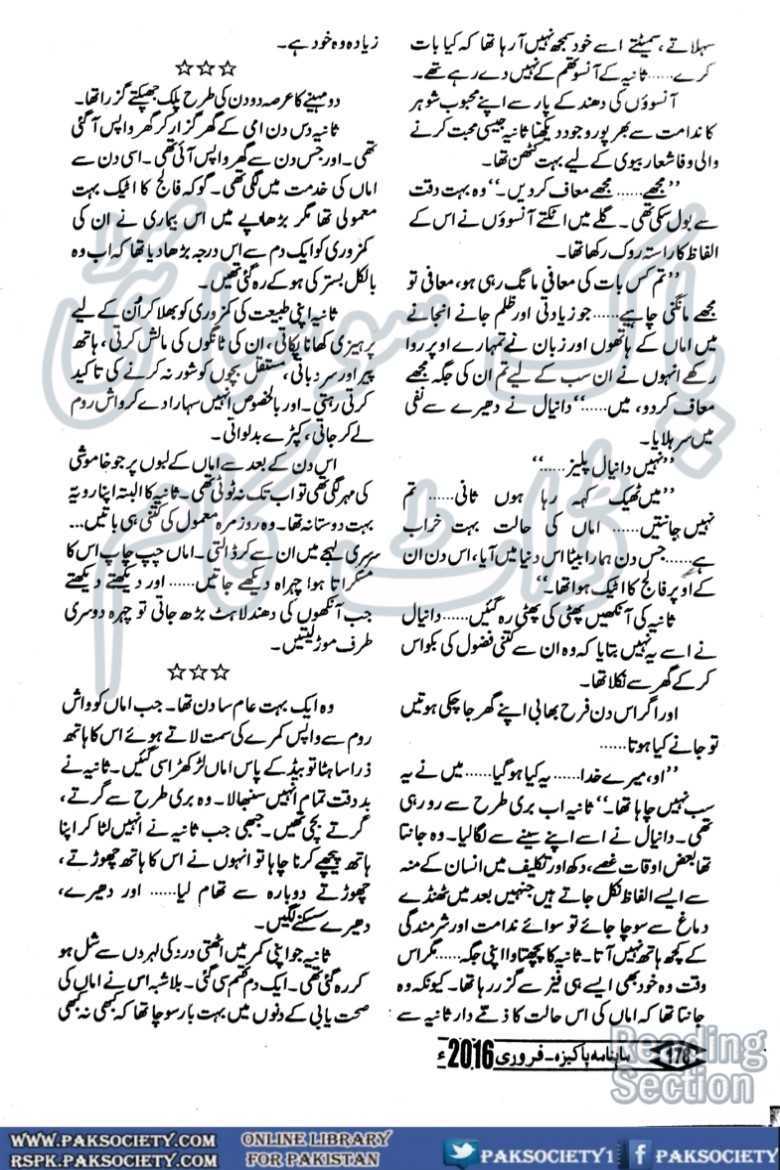 سہلاتے، سمیٹتے اسے خود سمجھ نہیں آ رہا تھا کہ کیا بات
کرے...... ثانیہ کے آنسو تھم کے نہیں دے رہے تھے۔
آنسوؤں کی دھند کے پار سے اپنے محبوب شوہر
کا ندامت سے بھر پور وجود دیکھنا ثانیہ جیسی محبت کرنے
والی وفا شعار بیوی کے لیے بہت کٹھن تھا۔
”مجھے...... مجھے معاف کر دیں۔“ وہ بہت دقت
سے بول سکی تھی۔ گلے میں اٹکتے آنسوؤں نے اس کے
الفاظ کا راستہ روک رکھا تھا۔
”تم کس بات کی معافی مانگ رہی ہو، معافی تو
مجھے مانگنی چاہیے...... جو زیادتی اور ظلم جانے انجانے
میں اماں کے ہاتھوں اور زبان نے تمہارے اوپر روا
رکھے انہوں نے ان سب کے لیے تم ان کی جگہ مجھے
معاف کر دو، میں......“ دانیال نے دھیرے سے نفی
میں سر ہلایا۔
”نہیں دانیال پلیز......“
”میں ٹھیک کہہ رہا ہوں ثانی...... تم
نہیں جانتیں...... اماں کی حالت بہت خراب
ہے......جس دن ہمارا بیٹا اس دنیا میں آیا، اس دن ان
کے اوپر فالج کا اٹیک ہوا تھا۔“
ثانیہ کی آنکھیں پھٹی کی پھٹی رہ گئیں...... دانیال
نے اسے یہ نہیں بتایا کہ وہ ان سے کتنی فضول کی بکواس
کر کے گھر سے نکلا تھا۔
اور اگر اس دن فرح بھابی اپنے گھر جا چکی ہوتیں
تو جانے کیا ہوتا......
”او، میرے خدا...... یہ کیا ہو گیا...... میں نے یہ
سب نہیں چاہا تھا۔“ ثانیہ اب بری طرح سے رو رہی
تھی۔ دانیال نے اسے اپنے سینے سے لگا لیا۔ وہ جانتا
تھا بعض اوقات غصے، دکھ اور تکلیف میں انسان کے منہ
سے ایسے الفاظ نکل جاتے ہیں جنہیں بعد میں ٹھنڈے
دماغ سے سوچا جائے تو سوائے ندامت اور شرمندگی
کے کچھ ہاتھ نہیں آتا۔ ثانیہ کا پچھتاوا اپنی جگہ...... مگر اس
وقت وہ خود بھی ایسے ہی فیز سے گزر رہا تھا۔ کیونکہ وہ
جانتا تھا کہ اماں کی اس حالت کا ذمے دار ثانیہ سے
زیادہ وہ خود ہے۔
☆☆☆
دو مہینے کا عرصہ دو دن کی طرح پلک جھپکتے گزرا تھا۔
ثانیہ دس دن امی کے گھر گزار کر گھر واپس آ گئی
تھی۔ اور جس دن سے گھر واپس آئی تھی۔ اسی دن سے
اماں کی خدمت میں لگی تھی۔ گو کہ فالج کا اٹیک بہت
معمولی تھا مگر بڑھاپے میں اس بیماری نے ان کی
کمزوری کو ایک دم سے اس درجہ بڑھا دیا تھا کہ اب وہ
بالکل بستر کی ہو کے رہ گئی تھیں۔
ثانیہ اپنی طبیعت کی کمزوری کو بھلا کر اُن کے لیے
پرہیزی کھانا پکاتی، ان کی ٹانگوں کی مالش کرتی، ہاتھ
پیر اور سر دباتی، مستقل بچوں کو شور نہ کرنے کی تاکید
کرتی رہتی۔ اور بالخصوص انہیں سہارا دے کر واش روم
لے کر جاتی، کپڑے بدلواتی۔
اس دن کے بعد سے اماں کے لبوں پر جو خاموشی
کی مہر لگی تھی تو اب تک نہ ٹوٹی تھی۔ ثانیہ کا البتہ اپنا رویّہ
بہت دوستانہ تھا۔ وہ روز مرہ معمول کی کتنی ہی باتیں...
سرسری لہجے میں ان سے کر ڈالتی۔ اماں چپ چاپ اس کا
مسکراتا ہوا چہرہ دیکھے جاتیں...... اور دیکھتے دیکھتے
جب آنکھوں کی دھندلاہٹ بڑھ جاتی تو چہرہ دوسری
طرف موڑ لیتیں۔
☆☆☆
وہ ایک بہت عام سا دن تھا۔ جب اماں کو واش
روم سے واپس کمرے کی سمت لاتے ہوئے اس کا ہاتھ
ذرا سا ہٹا تو بیڈ کے پاس اماں لڑکھڑا سی گئیں۔ ثانیہ نے
بہ دقت تمام انہیں سنبھالا۔ وہ بری طرح سے گرتے،
گرتے بچی تھیں۔ جبھی جب ثانیہ نے انہیں لٹا کر اپنا
ہاتھ پیچھے کرنا چاہا تو انہوں نے اس کا ہاتھ چھوڑتے،
چھوڑتے دوبارہ سے تھام لیا...... اور دھیرے،
دھیرے سسکنے لگیں۔
ثانیہ جو اپنی کمر میں اٹھتی درد کی لہروں سے شل ہو
کر رہ گئی تھی۔ ایک دم تھم سی گئی۔ بلاشبہ اس نے اماں کی
صحت یابی کے دنوں میں بہت بار سوچا تھا کہ کبھی نہ کبھی
178 ماہنامہ پاکیزہ۔ فروری 2016ء
Reading
Section
پاک سوسائٹی
ڈاٹ کام
WWW.PAKSOCIETY.COM
RSPK.PAKSOCIETY.COM
ONLINE LIBRARY
FOR PAKISTAN
PAKSOCIETY1
PAKSOCIETY